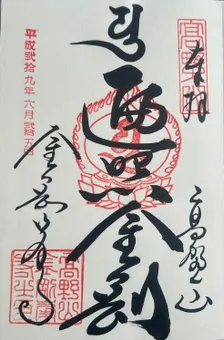 奉拝
高野山
遍照金剛
金剛峯寺
平成弐拾九年六月弐拾五日
高野山